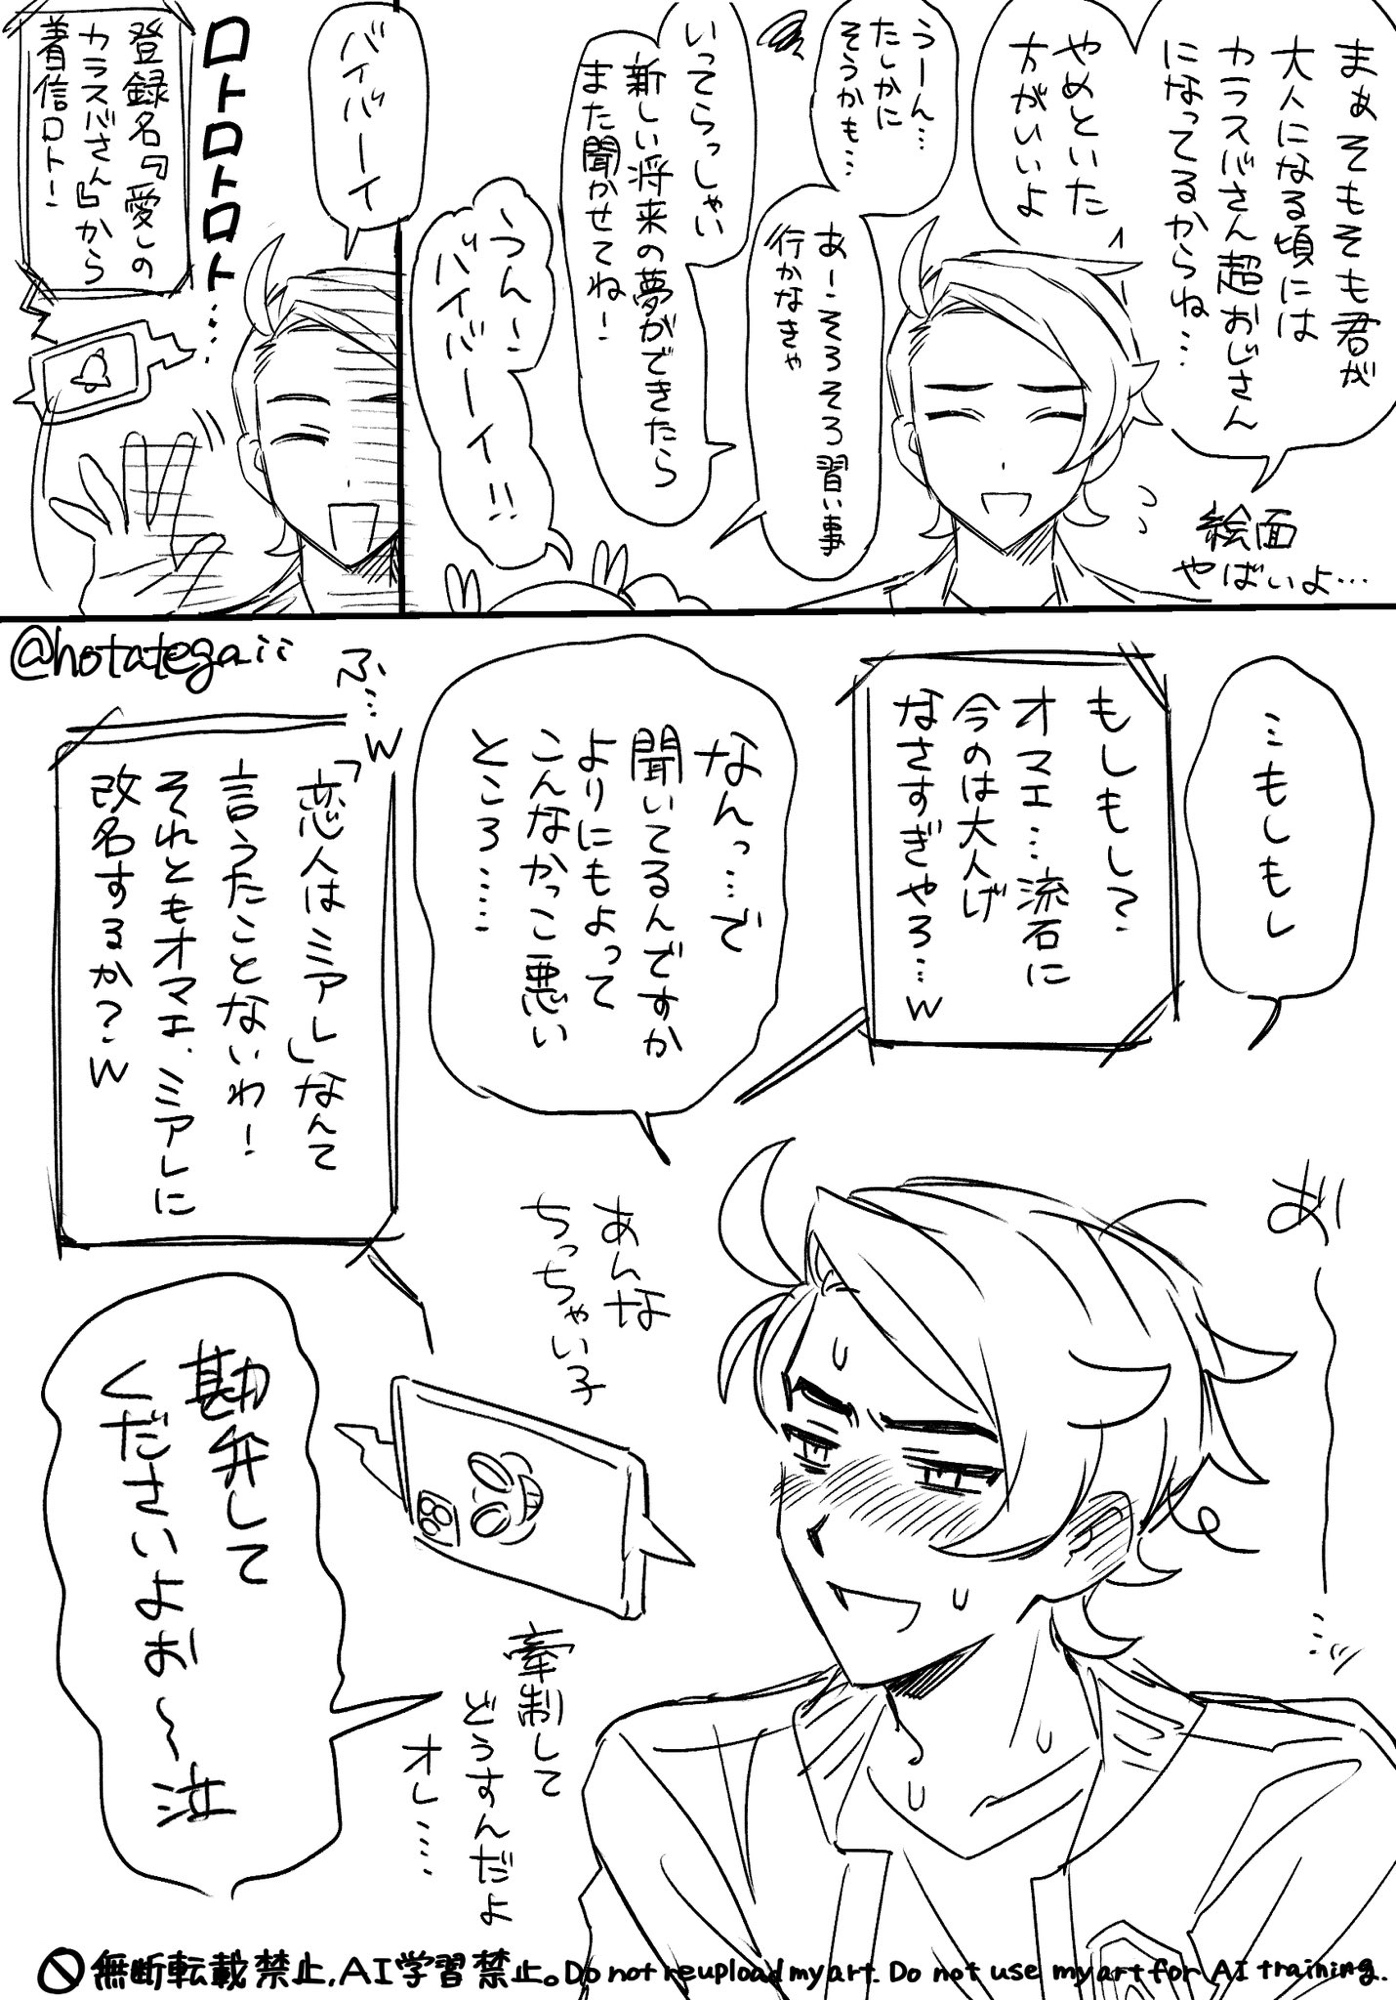 まぁそもそも君が
大人になる頃には
カラスバさん超おじさん
になってるからね…
やめといた
方がいいよ
絵面
やばいよ…
うーん…
たしかに
そうかも…
あーそろそろ習い事
行かなきゃ
いってらっしゃい
新しい将来の夢ができたら
また聞かせてね!
うん!
バイバーイ!!
バイバーイ
ロトロトロト…
登録名『愛しの
カラスバさん』から
着信ロト!
@hotategaii
…もしもし
もしもし?
オマエ…流石に
今のは大人げ
なさすぎやろ…w
なんっ…で
聞いてるんですか
よりにもよって
こんなかっこ悪い
ところ……
ふ…w
「恋人はミアレ」なんて
言うたことないわ!
それともオマエ、ミアレに
改名するか?w
あ〜…
あんな
ちっちゃい子
牽制して
どうすんだよ
オレ…
勘弁して
くださいよお〜泣
無断転載禁止,AI学習禁止。Do not reupload my art. Do not use my art for AI training.